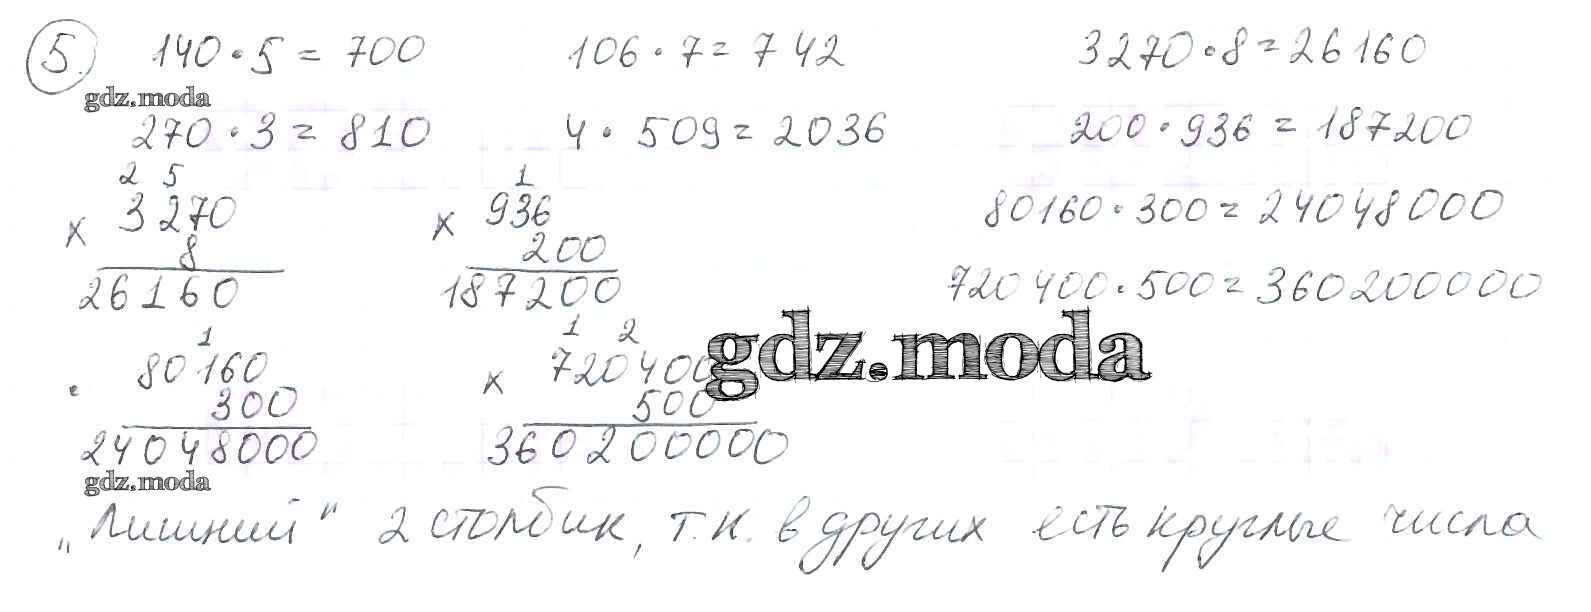 5. 140 · 5 = 700 106 · 7 = 742 3270 · 8 = 26160
gdz.moda
270 · 3 = 810 4 · 509 = 2036 200 · 936 = 187200
2 5 1
× 3270 × 936 80160 · 300 = 24048000
8 200
26160 187200 720400 · 500 = 360200000
1 1 2
· 80160 × 720400 gdz.moda
300 500
24048000 360200000
gdz.moda
„Лишний“ 2 столбик, т.к. в других есть круглые числа